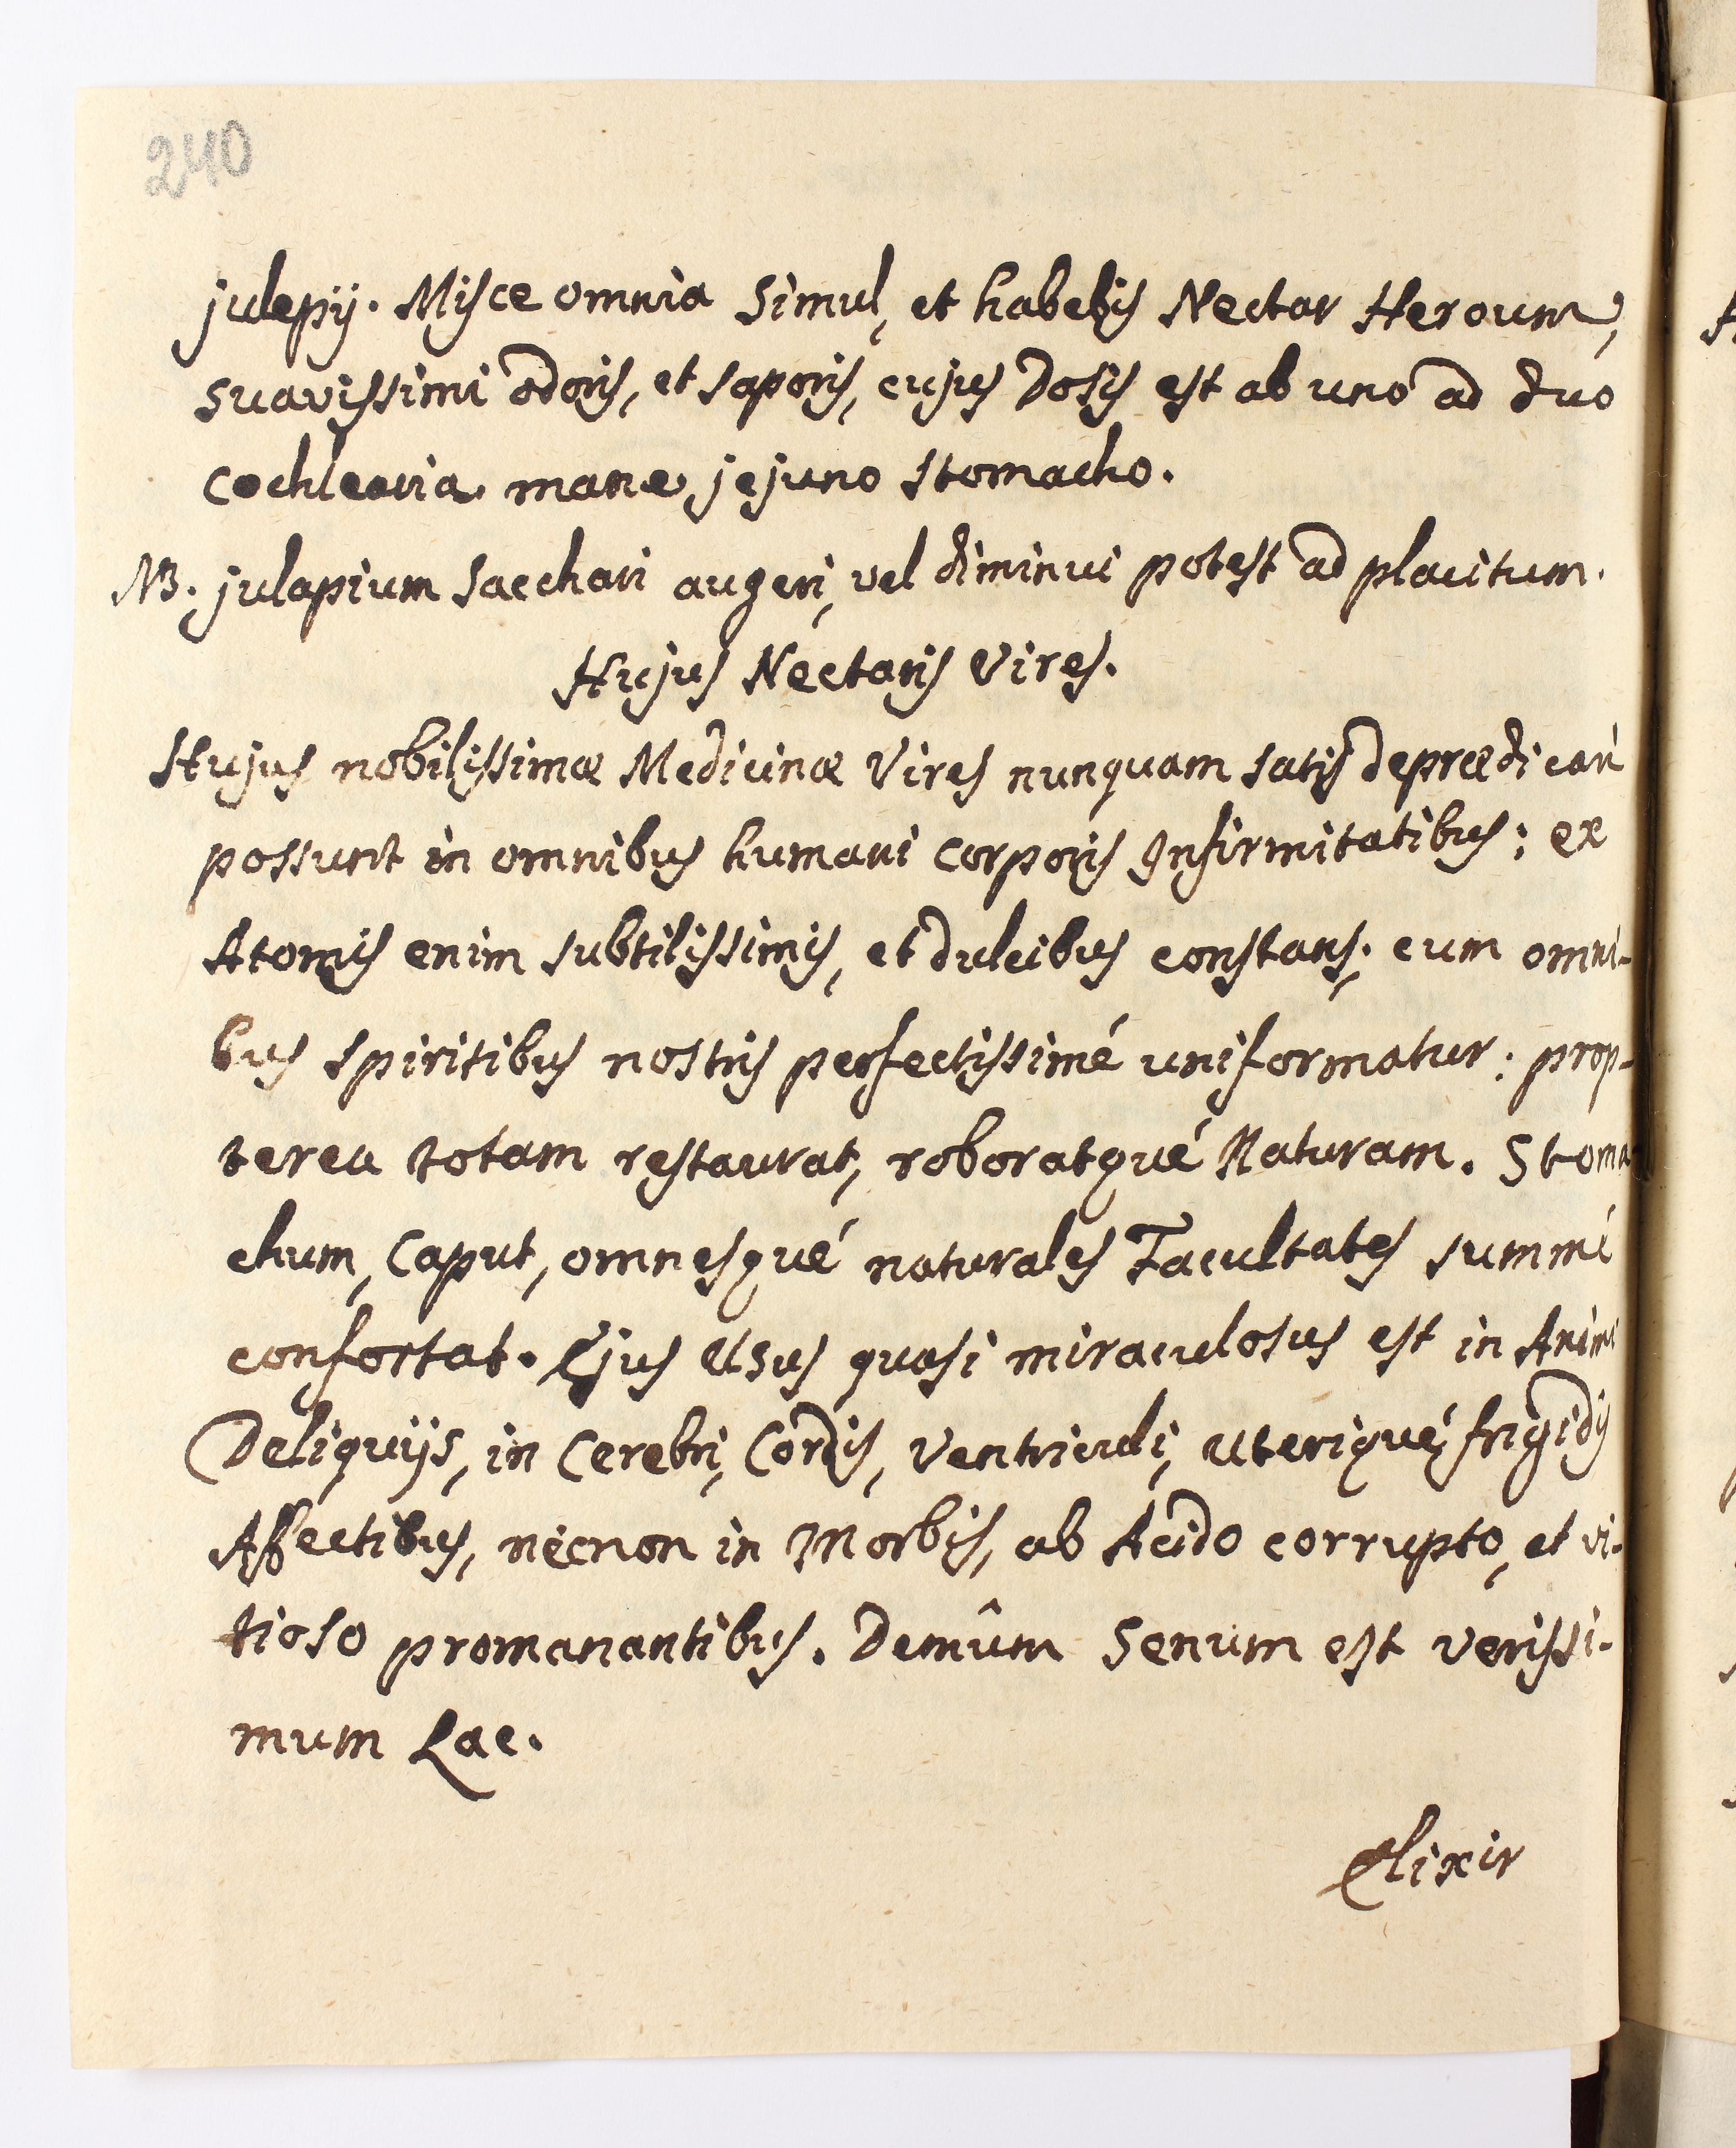 240
julepij. Misce omnia simul, et habebis Nectar Heroum,
suavissimi odoris, et saporis, cujus Dosis est ab uno ad duo
Cochlearia mane jejuno stomacho.
NB. julapium sacchari augeri, vel diminui potest ad placitum.
Hujus Nectaris Vires.
Hujus nobilissimæ Medicinæ Vires nunquam satis deprædicari
possunt in omnibus humani corporis Infirmitatibus; ex
Atomis enim subtilissimis, et dulcibus constans; cum omni-
bus spiritibus nostris perfectissimé uniformatur: prop-
terea totam restaurat, roboratqué Naturam. Stoma
chum, Caput, omnesqué naturales Facultates summé
confortat. Ejus Usus quasi miraculosus est in Animi
Deliquijs, in Cerebri, Cordis, Ventriculi, uteriqué, frigidis
Affectibus, necnon in Morbis, ab Acido corrupto, et vi-
tioso promanantibus. Demûm Senum est verissi-
mum Lac.
Elixir